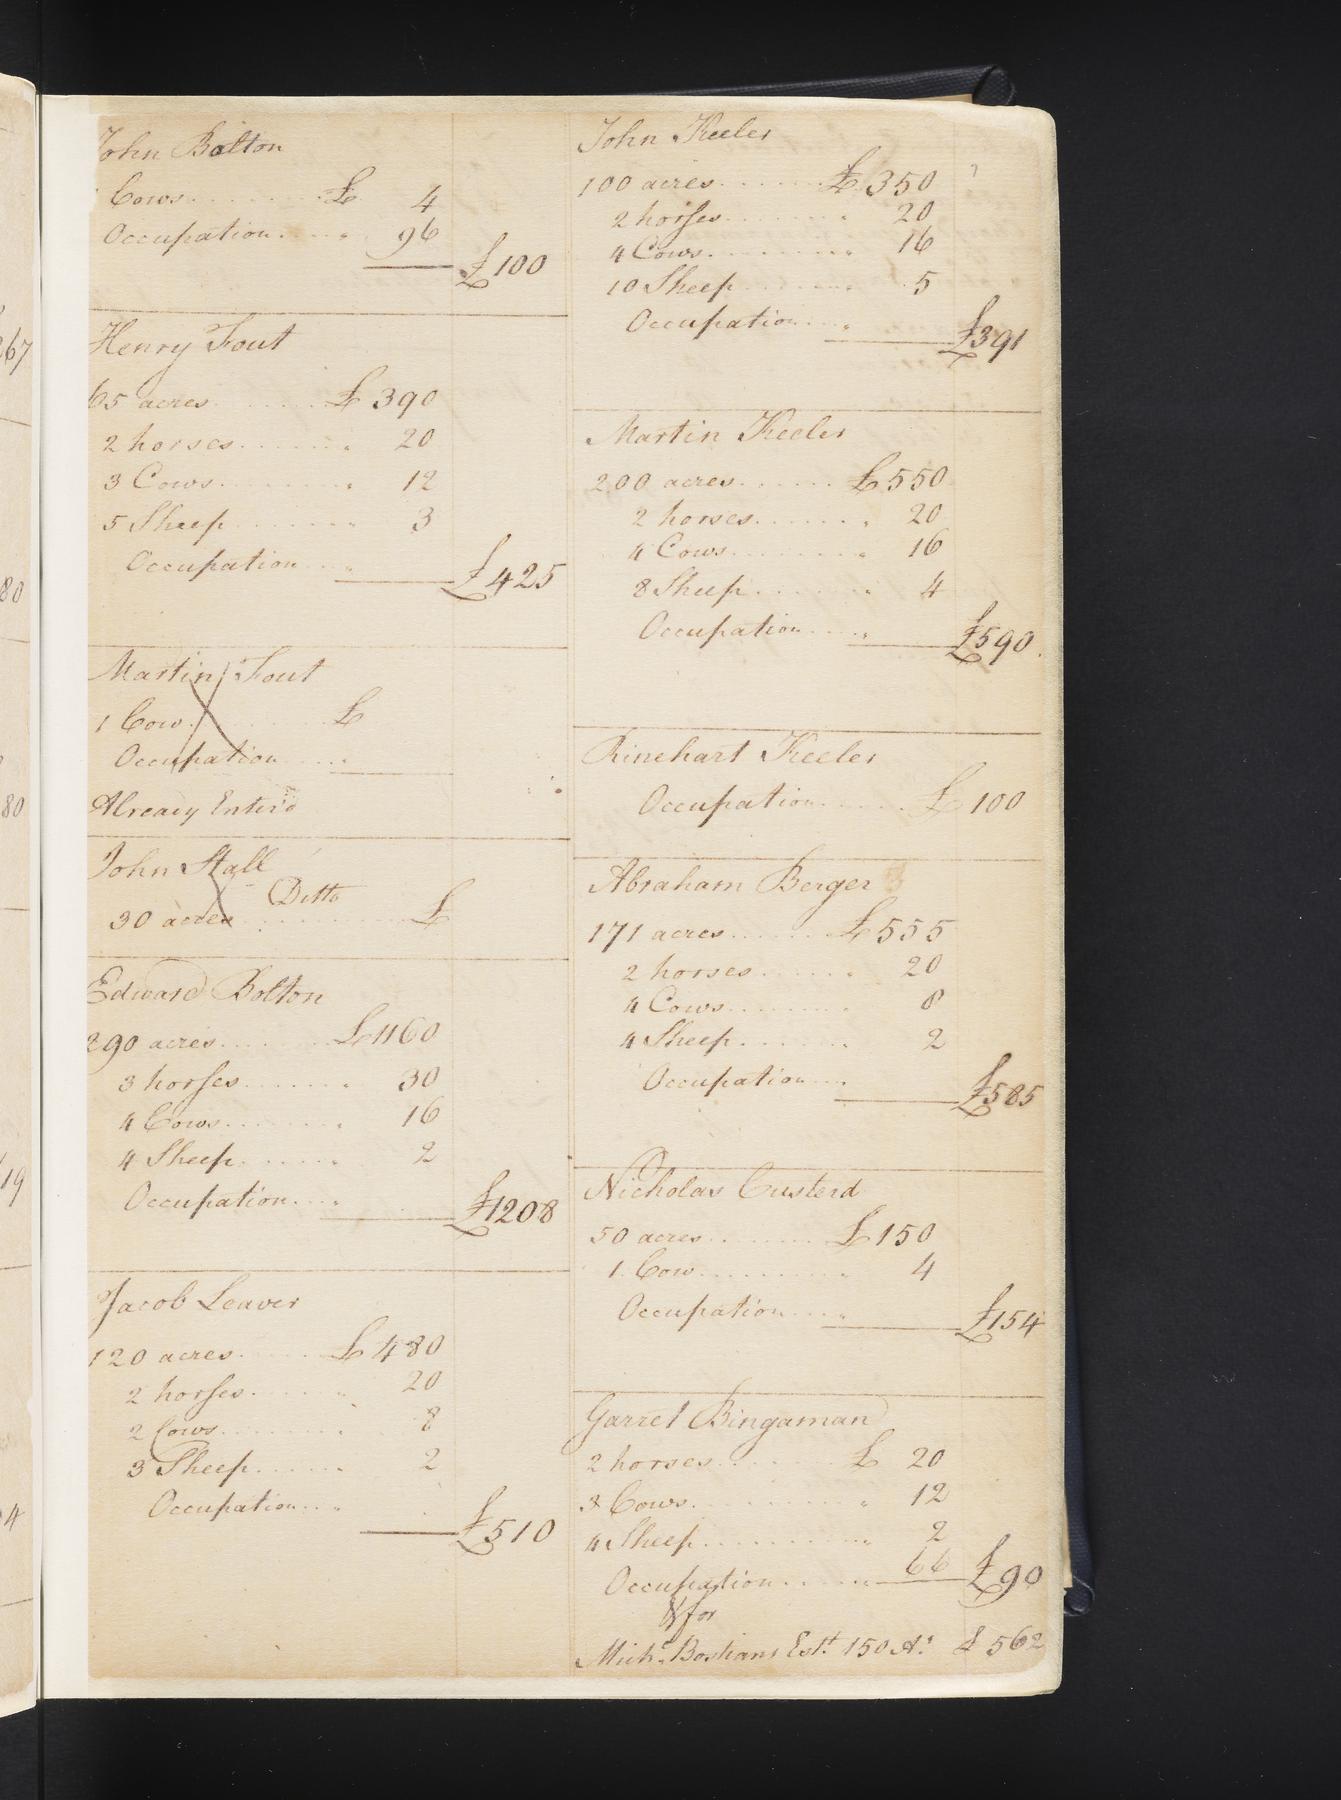 John Bolton
Cows........ £ 4
Occupation..... 96
£100
Henry Fout
65 acres....... £390
2 horses....... 20
3 Cows........ 12
5 Sheep....... 3
Occupation....
£425
Martin Fout
1 Cow....... £
Occupation....
Already Enter'd
John Stall
Ditto
30 acres....... £
Edward Bolton
290 acres...... £1160
3 horses....... 30
4 Cows....... 16
4 Sheep...... 2
Occupation....
£1208
Jacob Leaver
120 acres..... £480
2 horses..... 20
2 Cows....... 8
3 Sheep...... 2
Occupation...
£510
John Keeler
100 acres...... £350
2 horses....... 20
4 Cows....... 16
10 Sheep....... 5
Occupation....
£391
Martin Keeler
200 acres...... £550
2 horses...... 20
4 Cows....... 16
8 Sheep....... 4
Occupation....
£590
Rinehart Keeler
Occupation...... £100
Abraham Berger
171 acres...... £555
2 horses...... 20
4 Cows....... 8
4 Sheep...... 2
Occupation....
£585
Nicholas Custerd
50 acres....... £150
1 Cow........ 4
Occupation....
£154
Garret Bingaman
2 horses....... £ 20
3 Cows........ 12
4 Sheep........ 2
Occupation...... 66 £90
& for
Michl. Bostians Estt. 150 As. £562
267
80
80
19
4